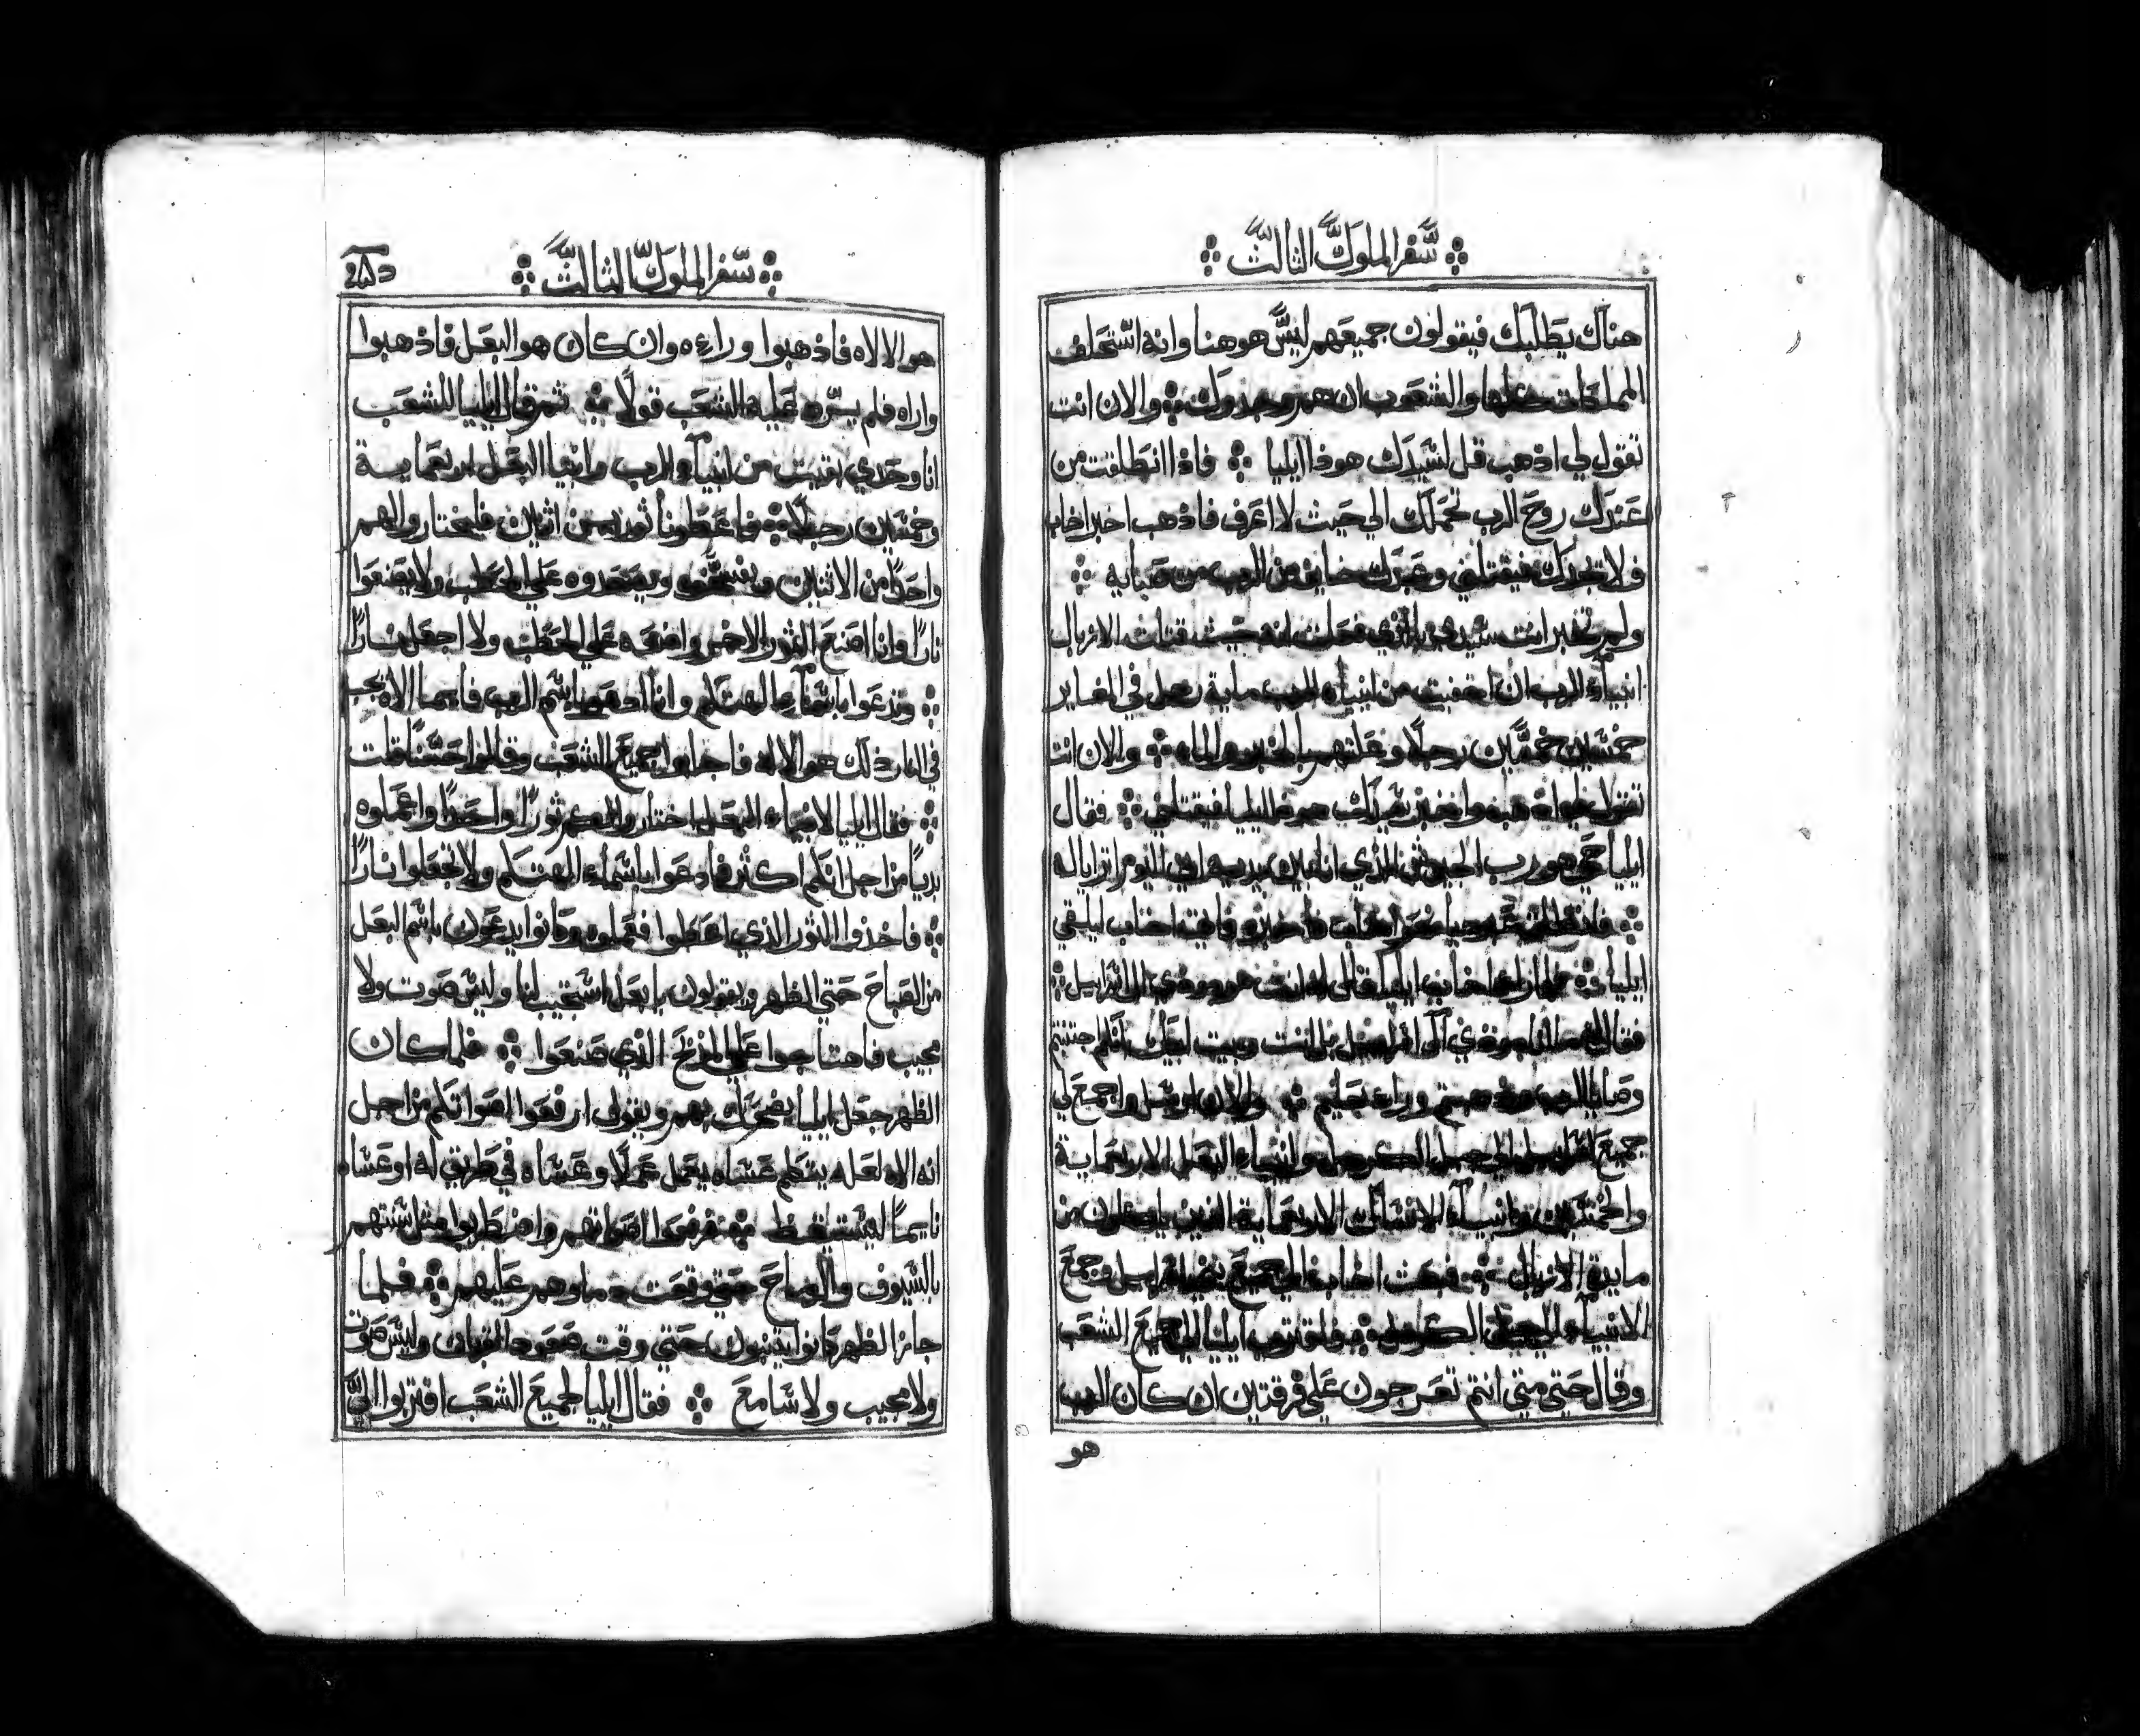 سفر الملوك الثالث
هناك يطلبك فيقولون جميعهم ليس هو هنا وانه استحلف
المملكات كلها والشعوب ان هم وجدوك والان انت
تقول لي اذهب قل لسيدك هوذا ايليا فاذا انطلقت من
عندك روح الرب تحملك الي حيث لا اعرف فاذهب اخبر اخاب
ولا تجدك فيقتلني وعبدك خايف من الرب من صبايه
ولم تخبر انت سيدي بالذي فعلت انه حيث قتلت الازبال
انبياء الرب ان اخفيت من انبياء الرب ماية رجل في المغاير
خمسين خمسين رجلا وعلتهم بالخبز والماء والان انت
تقول لي اذهب واخبر سيدك هوذا ايليا فيقتلني فقال
ايليا حي هو رب الجيوش الذي انا بين يديه اني اليوم اترايا له
فانطلق عبديا نحو اخاب فاخبره فاقبل اخاب ليلقي
ايليا اخاب ايليا قال له انت هو موذي ال اسراييل
فقال موذي آل اسراييل بل انت وبيت ابيك انكم جنبتم
وصايا الرب وذهبتم وراء بعليم والان ارسل واجمع لي
جميع اسراييل الي جبل الكرمل وانبياء البعل الاربعماية
والخمسين وانبياء الانساك الاربعماية الذين ياكلون من
مايدة الازبال فبعث اخاب الي جميع بني اسراييل وجمع
الانبياء الي جبل الكرمل فاقترب ايليا الي جميع الشعب
وقال حتي متي انتم تعرجون علي فرقتين ان كان الرب
هو
سفر الملوك الثالث
هو الالاه فاذهبوا وراءه وان كان هو البعل فاذهبوا
واراه فلم يرد عليه الشعب قولا ثم قال ايليا للشعب
انا وحدي بقيت من انبياء الرب وانبيا البعل اربعماية
وخمسين رجلا فاعطونا ثورين اثنين فليختاروا لهم
واحدا من الاثنين ويفسخوه ويصعدوه علي الحطب ولا يضعوا
نارا وانا اصنع الثور الاخر واضعه علي الحطب ولا اجعل نارا
وتدعوا باسماء الهتكم وانا ادعو باسم الرب فايما الاه يجب
في النار ذلك هو الالاه فاجابوا جميع الشعب وقالوا حسنا قلت
فقال ايليا لانبياء البعل اختاروا لكم ثورا واحدا واعملوه
بديا من اجل انكم اكثر فادعوا باسماء الهتكم ولا تجعلوا نارا
فاخذوا الثور الذي اعطوا فعملوه وكانوا يدعون باسم البعل
من الصباح حتي الظهر ويقولون يا بعل استجيب لنا وليس صوت ولا
مجيب فاحتاجوا علي المذبح الذي صنعوا فلما كان
الظهر جعل ايليا يضحك بهم ويقول ارفعوا اصواتكم من اجل
انه الاه لعله يتكلم عساه يعمل عملا وعساه في طريق له او عساه
نايما ليستيقظ فرفعوا اصواتهم واضطربوا مثل سنتهم
بالسيوف والرماح حتي وقعت دماوهم عليهم فلما
جاز الظهر كانوا يتنبون حتي وقت صعود القربان وليس صوت
ولا مجيب ولا سامع فقال ايليا لجميع الشعب اقتربوا الي